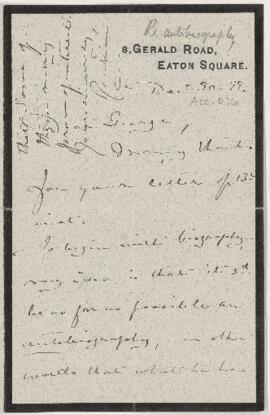 Re autobiography
8, GERALD ROAD,
EATON SQUARE.
Dec. 20. 99.
that some of
George,
Many thanks
for your letter of 13th
inst.
To begin with biography
my idea is that it sd
be as far as possible an
autobiography, in other
words that what he has